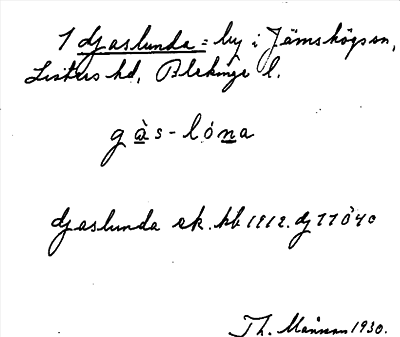 1 Gaslunda = by i Jämshögs sn,
Listers hd, Blekinge l.
gàs-lóna
Gaslunda ek. kb 1912. dj 11ö40
Th. Månsson 1930.